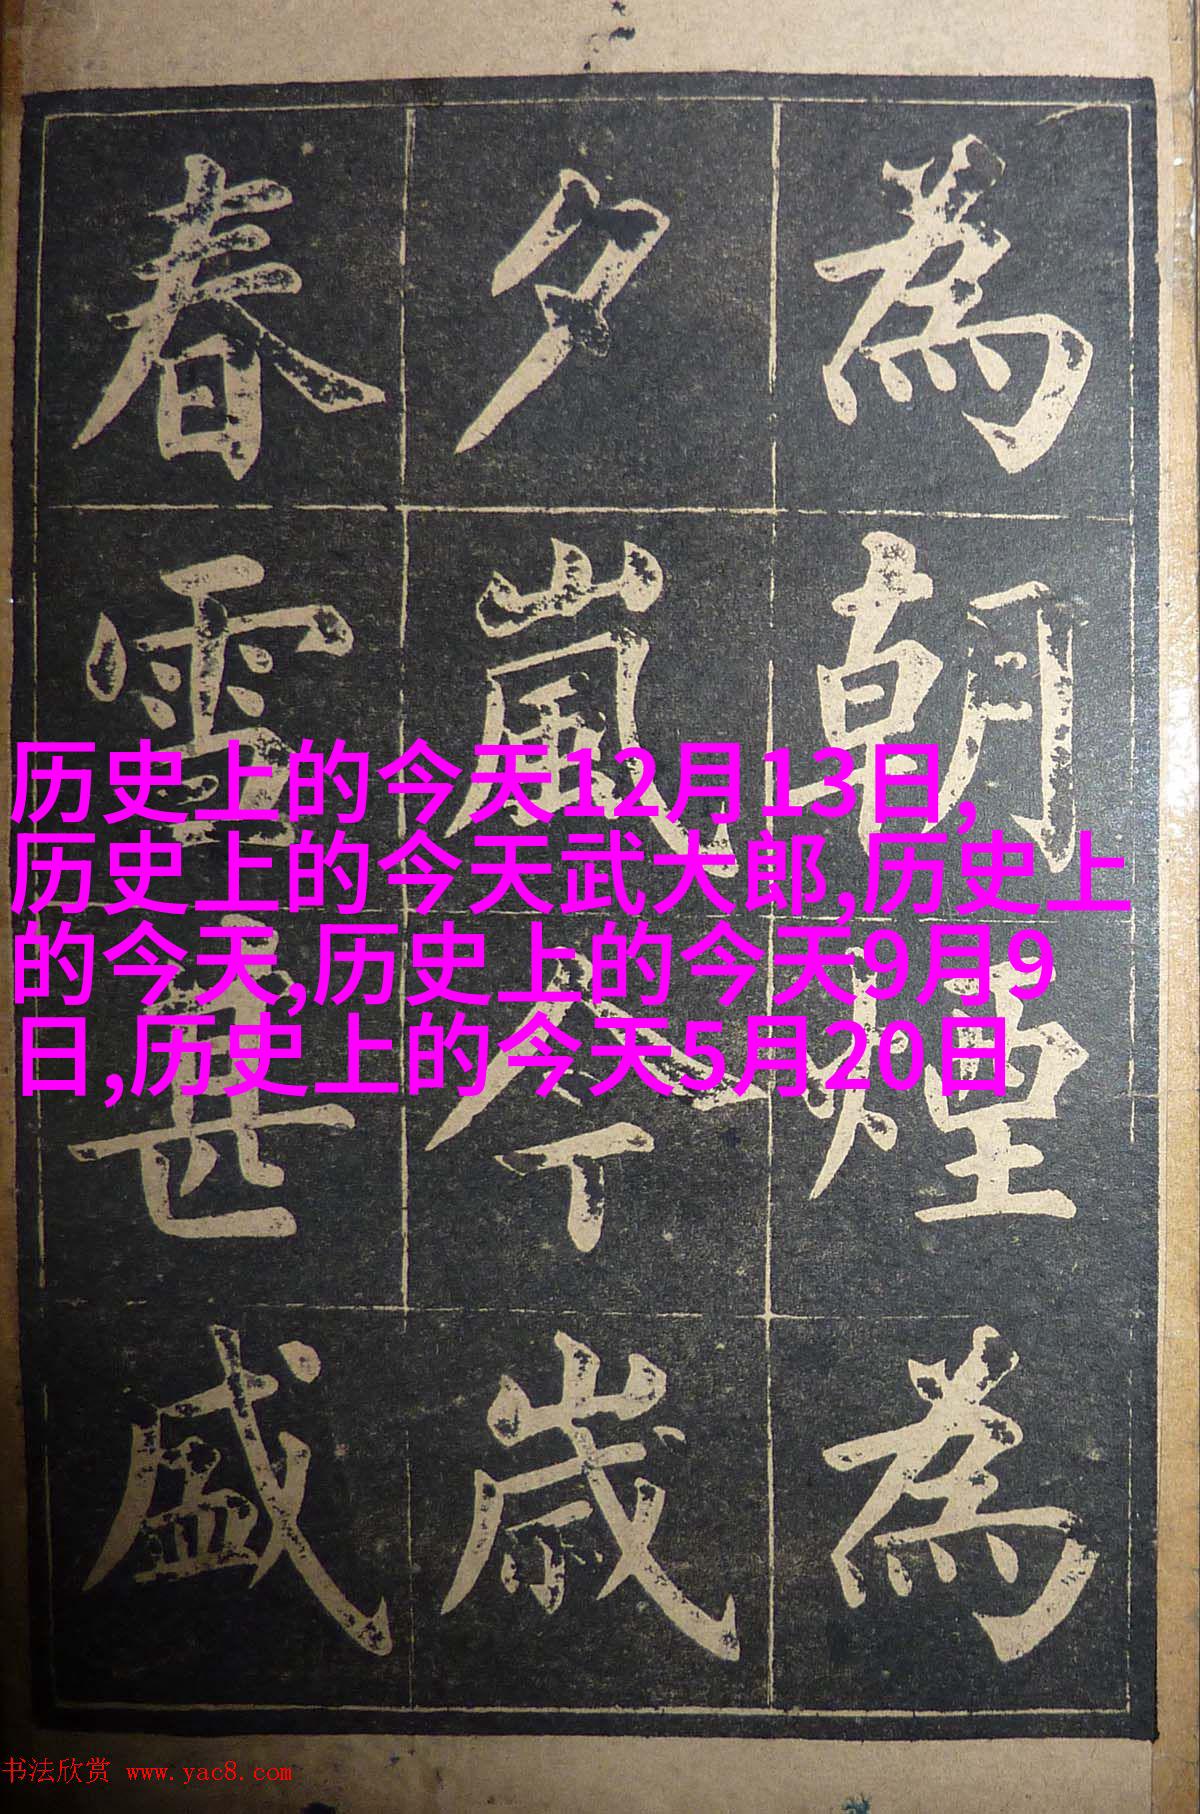 為朝煙為
夕嵐今歳
春雪甚盛
历史上的今天12月13日,
历史上的今天武大郎,历史上
的今天,历史上的今天9月9
日,历史上的今天5月20日
书法欣赏 www.yac8.com